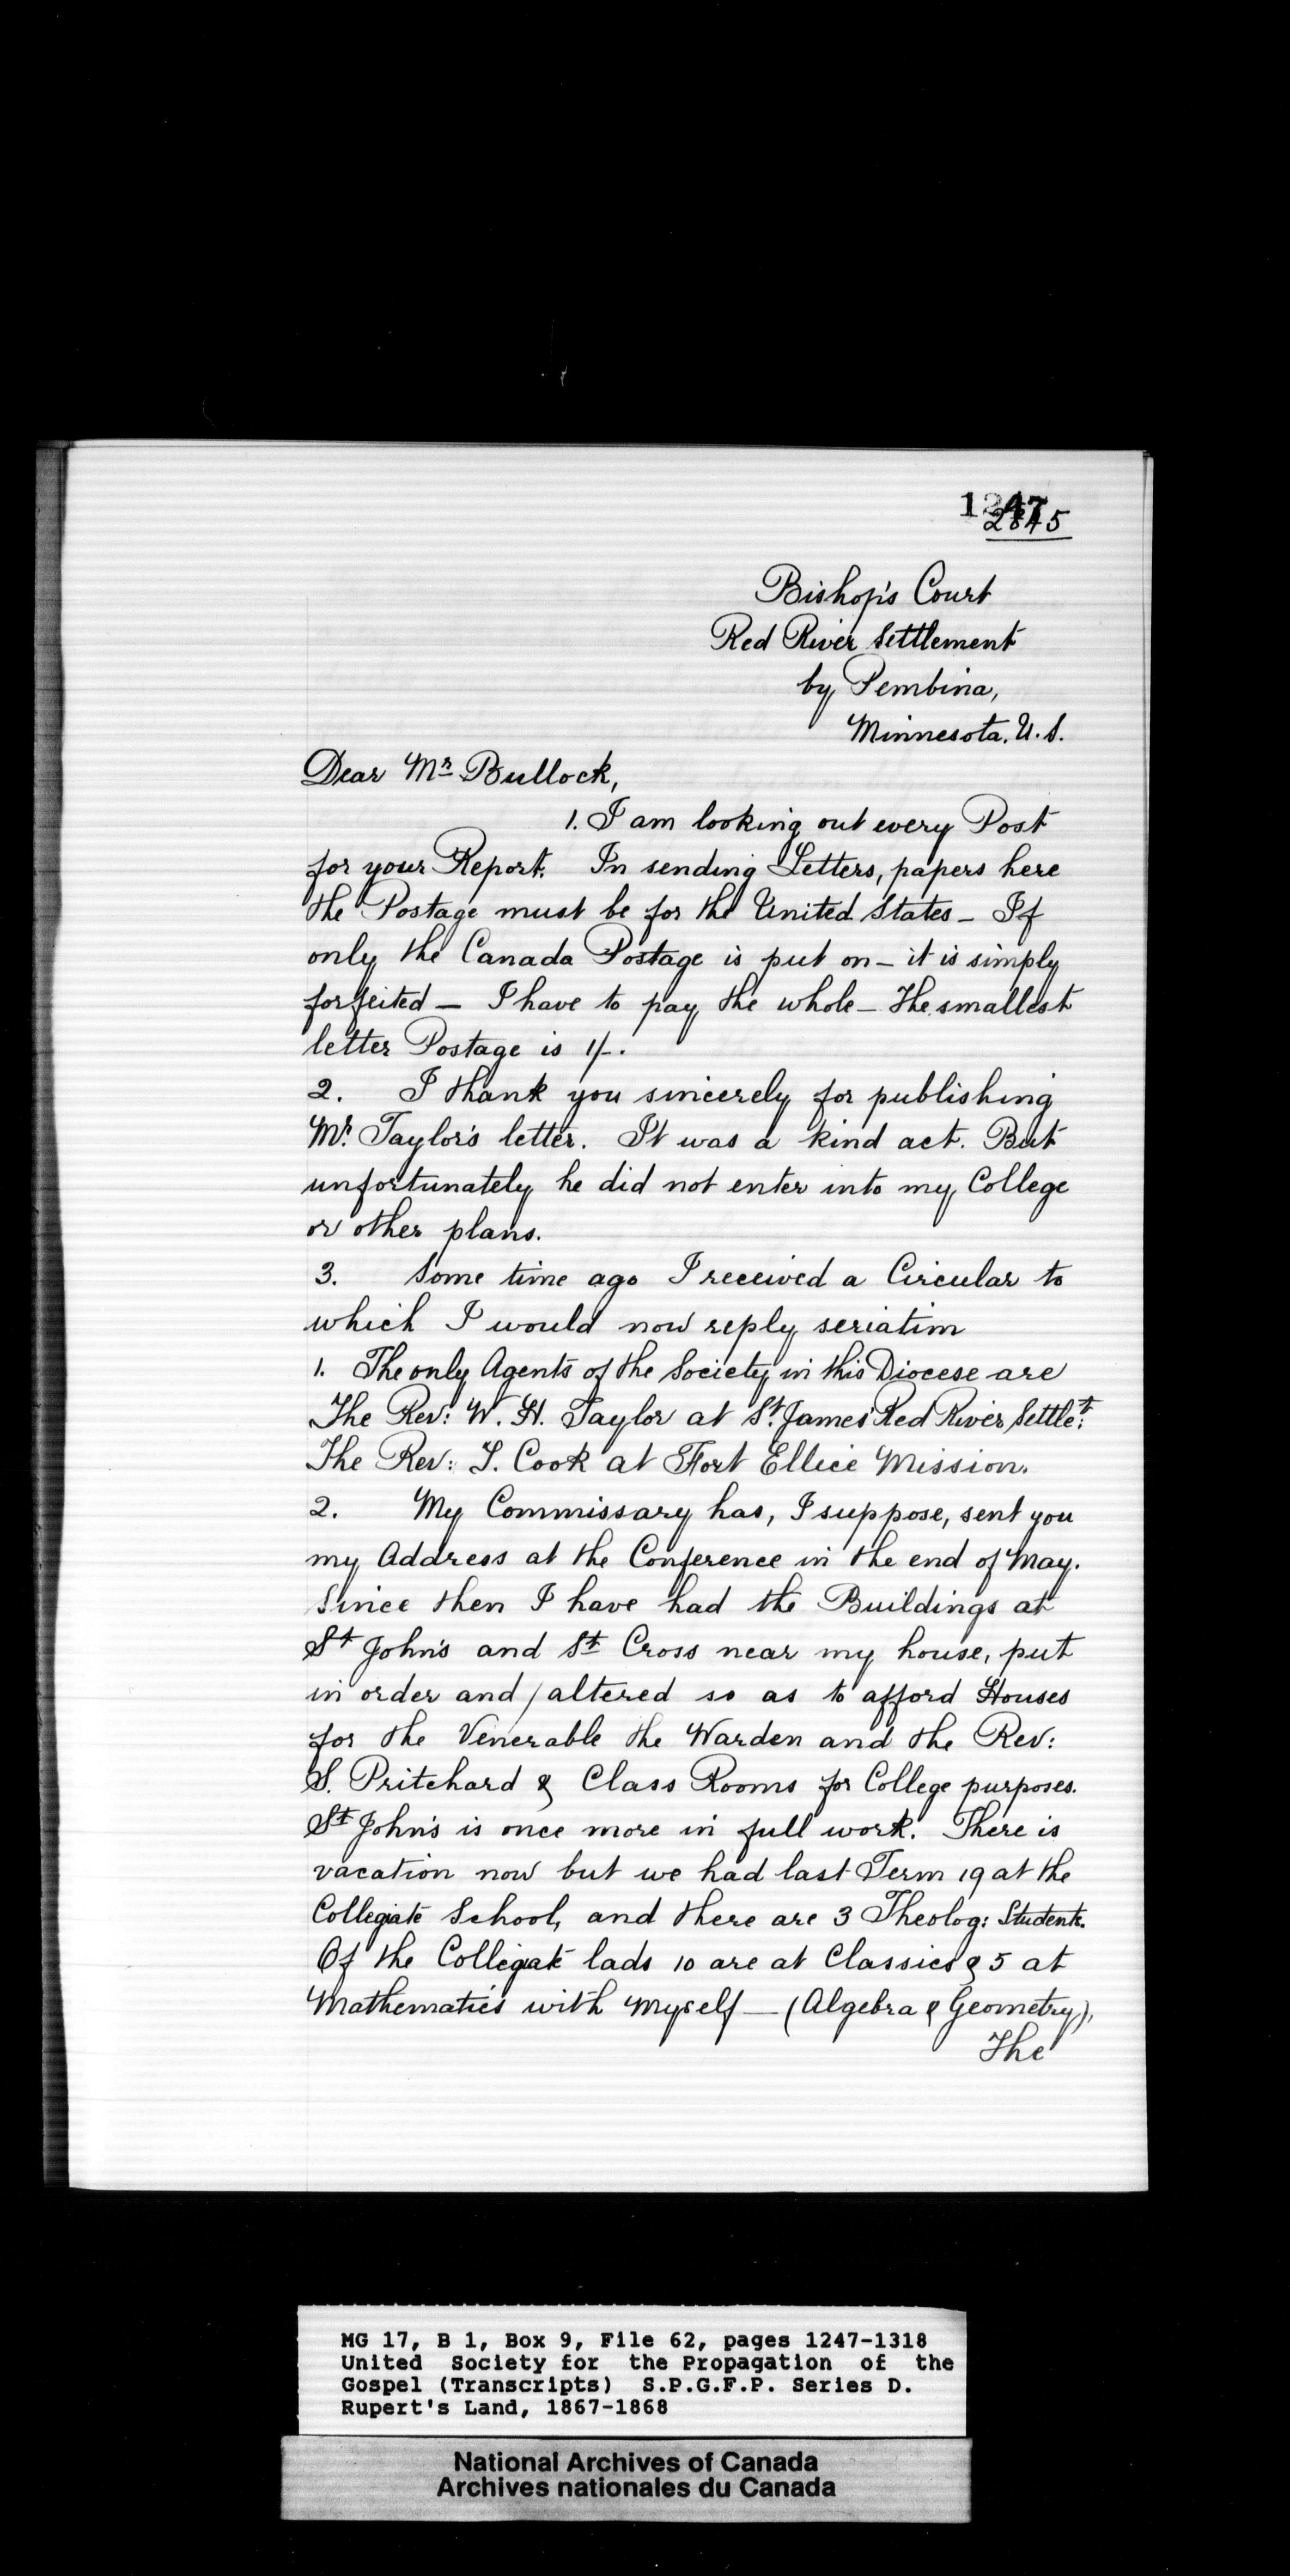 1247
2845
Bishop's Court
Red River Settlement
by Pembina,
Minnesota. U. S.
Dear Mr Bullock,
1. I am looking out every Post
for your Report. In sending Letters, papers here
the Postage must be for the United States – If
only the Canada Postage is put on – it is simply
forfeited – I have to pay the whole – the smallest
letter Postage is 1/-.
2. I thank you sincerely for publishing
Mr. Taylor's letter. It was a kind act. But
unfortunately he did not enter into my College
or other plans.
3. Some time ago I received a Circular to
which I would now reply seriatim
1. The only Agents of the Society in this Diocese are
The Rev: W. H. Taylor at St. James' Red River Settlet:
The Rev: T. Cook at Fort Ellice Mission.
2. My Commissary has, I suppose, sent you
my Address at the Conference in the end of May.
Since then I have had the Buildings at
St John's and St Cross near my house, put
in order and / altered so as to afford Houses
for the Venerable the Warden and the Rev:
S. Pritchard & Class Rooms for College purposes.
St John's is once more in full work. There is
vacation now but we had last Term 19 at the
Collegiate School, and there are 3 Theolog: Students.
Of the Collegiate lads 10 are at Classics & 5 at
Mathematics with myself – (Algebra & Geometry),
The
MG 17, B 1, Box 9, File 62, pages 1247-1318
United Society for the Propagation of the
Gospel (Transcripts) S.P.G.F.P. Series D.
Rupert's Land, 1867-1868
National Archives of Canada
Archives nationales du Canada